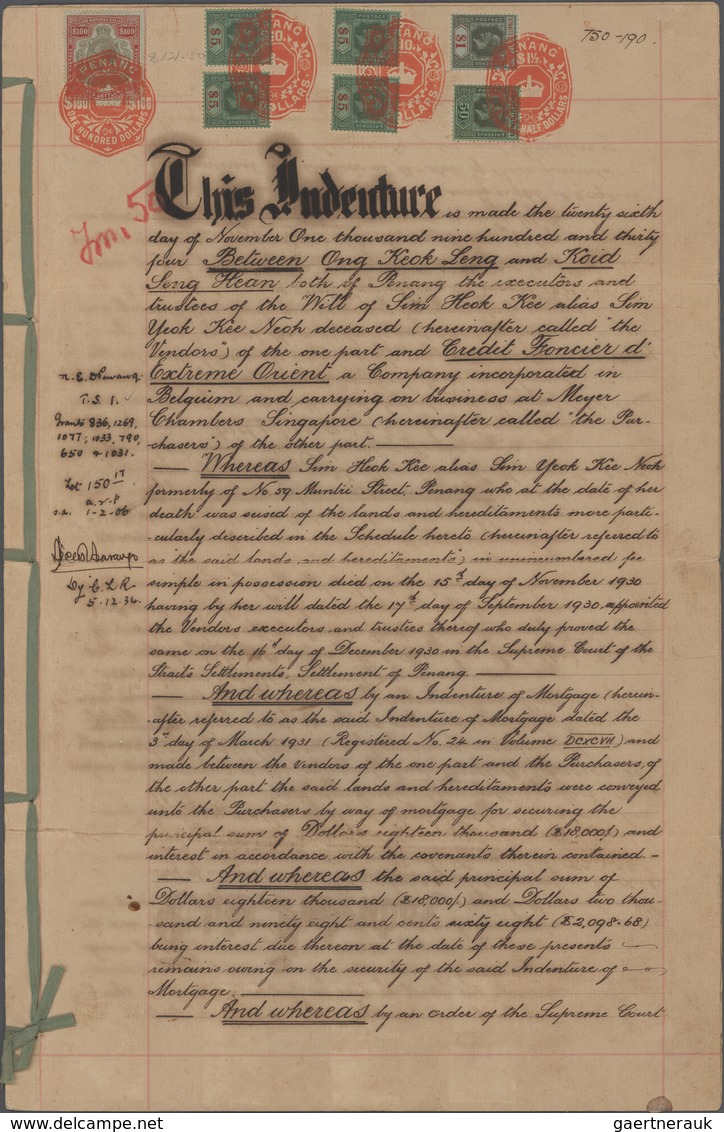 $100 $100
$5 $5 $1
$5 $5 50
PENANG
$100 $100
ONE HUNDRED DOLLARS
PENANG
DOLLARS
PENANG
DOLLARS
PENANG
$1½
HALF DOLLARS
$121-50
750-190.
This Indenture is made the twenty sixth
day of November One thousand nine hundred and thirty
four Between Ong Keok Leng and Koid
Seng Hean both of Penang the executors and
trustees of the Will of Sim Heok Kee alias Sim
Yeok Kee Neoh deceased (hereinafter called "the
Vendors") of the one part and Credit Foncier d'
Extreme Orient a Company incorporated in
Belgium and carrying on business at Meyer
Chambers Singapore (hereinafter called "the Pur-
-chasers") of the other part.
— Whereas Sim Heok Kee alias Sim Yeok Kee Neoh
formerly of No. 59 Muntri Street, Penang who at the date of her
death was seised of the lands and hereditaments more parti-
-cularly discribed in the Schedule hereto (hereinafter referred to
as "the said lands and hereditaments") in unincumbered fee
simple in possession died on the 15th day of November 1930
having by her will dated the 17th day of September 1930 appointed
the Vendors executors and trustees thereof who duly proved the
same on the 16th day of December 1930 in the Supreme Court of the
Straits Settlements, Settlement of Penang.
— And whereas by an Indenture of Mortgage (herein-
-after referred to as the said Indenture of Mortgage dated the
3rd day of March 1931 (Registered No. 24 in Volume DCXCVII) and
made between the Vendors of the one part and the Purchasers, of
the other part the said lands and hereditaments were conveyed
unto the Purchasers by way of mortgage for securing the
principal sum of Dollars eighteen thousand ($18,000/-) and
interest in accordance with the covenants therein contained.-
— And whereas the said principal sum of
Dollars eighteen thousand ($18,000/-) and Dollars two thou-
-sand and ninety eight and cents sixty eight ($2,098-68)
being interest due thereon at the date of these presents
remains owing on the security of the said Indenture of
Mortgage.
— And whereas by an order of the Supreme Court
N. E. D Penang
T. S. 1.
Grants 836, 1269,
1077, 1033, 790,
650 & 1031.
Lot 150 17
a. r. p
s.a. 1-2-06
Dy C. L. R.
5.12.34.
gaertnerauk @ gaertnerauk